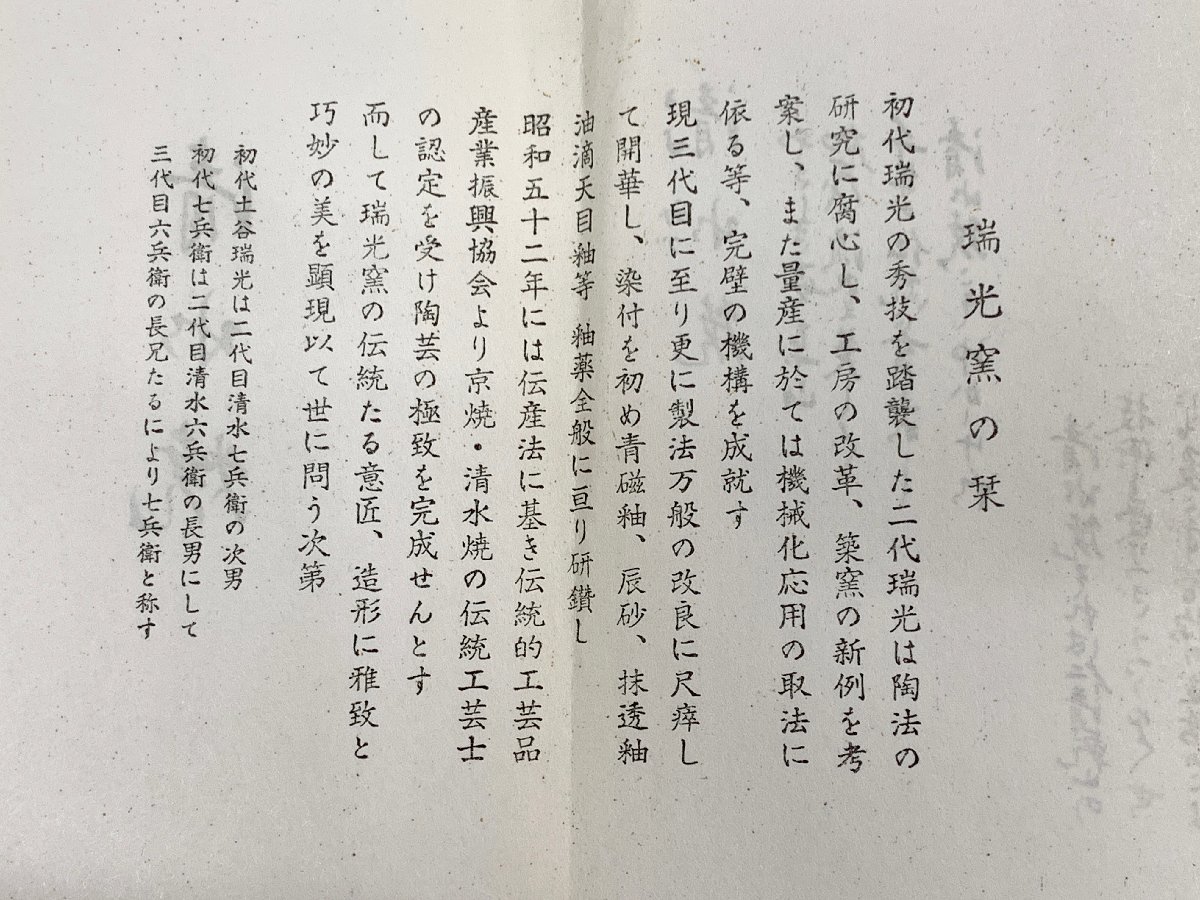 瑞光窯の栞
初代瑞光の秀技を踏襲した二代瑞光は陶法の
研究に腐心し、工房の改革、築窯の新例を考
案し、また量産に於ては機械化応用の取法に
依る等、完壁の機構を成就す
現三代目に至り更に製法万般の改良に尺瘁し
て開華し、染付を初め青磁釉、辰砂、抹透釉
油滴天目釉等 釉薬全般に亘り研鑽し
昭和五十二年には伝産法に基き伝統的工芸品
産業振興協会より京焼・清水焼の伝統工芸士
の認定を受け陶芸の極致を完成せんとす
而して瑞光窯の伝統たる意匠、造形に雅致と
巧妙の美を顕現以て世に問う次第
初代土谷瑞光は二代目清水七兵衛の次男
初代七兵衛は二代目清水六兵衛の長男にして
三代目六兵衛の長兄たるにより七兵衛と称す